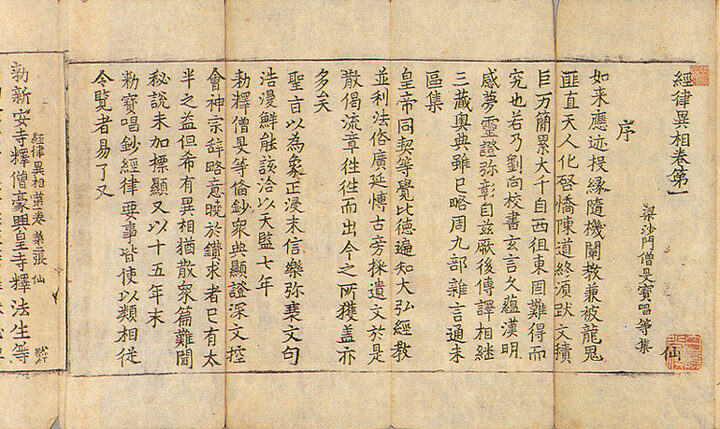 經律異相卷第一
梁沙門僧旻寶唱等集
仙
序
如来應迹投緣隨機闡教兼被龍鬼
匪直天人化啓憍陳道終須跋文積
巨万簡累大千自西徂東固難得而
究也若乃劉向校書玄言久蘊漢明
感夢靈證弥彰自茲厥後傳譯相継
三藏奥典雖已略周九部雜言通未
區集
皇帝同契等覺比德遍知大弘經教
並利法俗廣延博古旁採遺文於是
散偈流章徃徃而出今之所獲盖亦
多矣
聖旨以為象正浸末信樂弥衰文句
浩漫鮮能該洽以天監七年
勑釋僧旻等俻鈔衆典顯證深文控
會神宗辭略意曉於鑽求者已有太
半之益但希有異相猶散衆篇難聞
秘說未加標顯又以十五年末
勑寶唱鈔經律要事皆使以類相従
令覽者易了又
經律異相第一卷 張 仙
勑新安寺釋僧豪興皇寺釋法生等